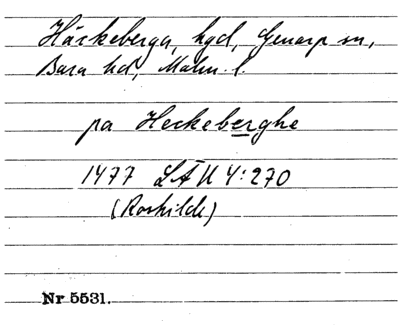 Häckeberga, hgd, Genarp sn,
Bara hd, Malm. l.
pa Heckeberghe
1477 LÄU 4:270
(Roskilde)
Nr 5531.